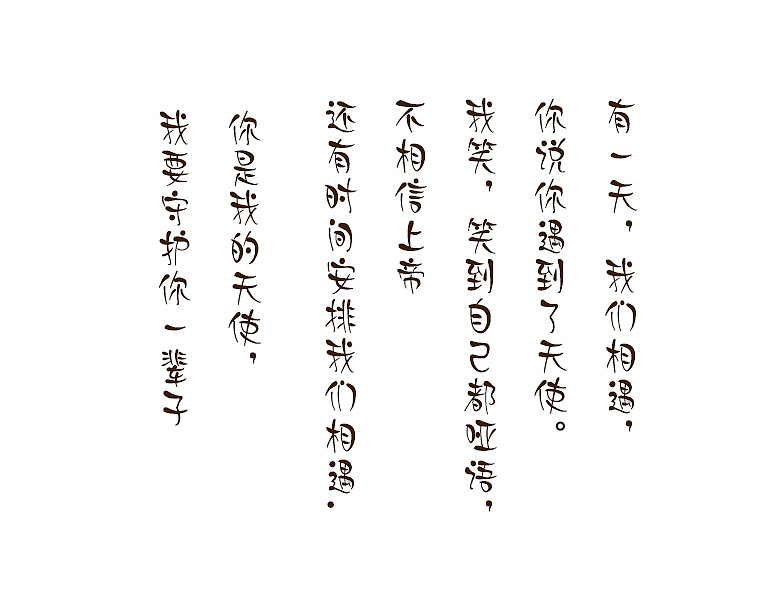 有一天，我们相遇，
你说你遇到了天使。
我笑，笑到自己都哑语，
不相信上帝
还有时间安排我们相遇.
你是我的天使，
我要守护你一辈子